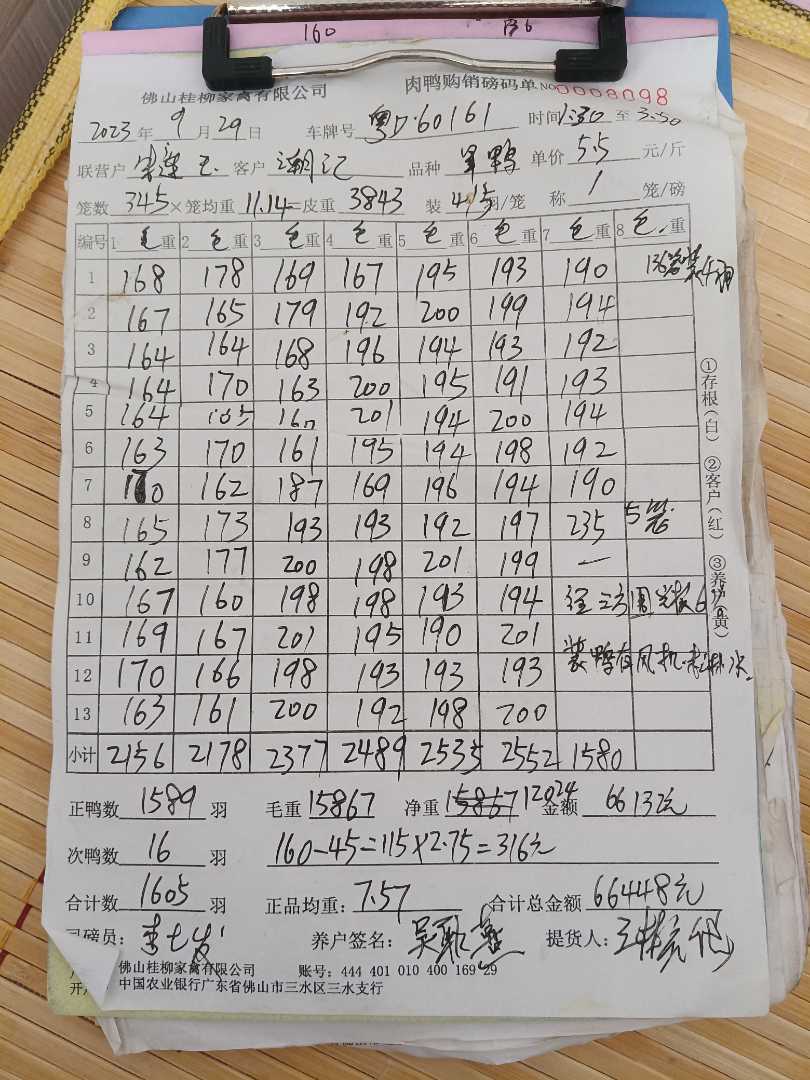 160
佛山桂柳家禽有限公司 肉鸭购销磅码单 No 0008098
2023年9月29日 车牌号 粤D·60161 时间1:30至3:50
联营户 客户 潮记 品种 鸭 单价5.5元/斤
笼数345×笼均重11.14=皮重3843 装4.5羽/笼 称1笼/磅
编号 1毛重 2毛重 3毛重 4毛重 5毛重 6毛重 7毛重 8毛重
1 168 178 169 167 195 193 190 136笼装4羽
2 167 165 179 192 200 199 194
3 164 164 168 196 194 193 192
4 164 170 163 200 195 191 193
5 164 165 160 201 194 200 194
6 163 170 161 195 194 198 192
7 170 162 187 169 196 194 190
8 165 173 193 193 192 197 235 5笼
9 162 177 200 198 201 199 —
10 167 160 198 198 193 194
11 169 167 201 195 190 201
12 170 166 198 193 193 193 装鸭有风机
13 163 161 200 192 198 200
小计 2156 2178 2377 2489 2535 2552 1580
正鸭数1589羽 毛重15867 净重15867 12024 金额66132元
次鸭数16羽 160-45=115×2.75=316元
合计数1605羽 正品均重:7.57 合计总金额66448元
司磅员: 养户签名: 提货人:
佛山桂柳家禽有限公司 账号: 444 401 010 400 169 29
开户 中国农业银行广东省佛山市三水区三水支行
①存根(白) ②客户(红) ③养户(黄)